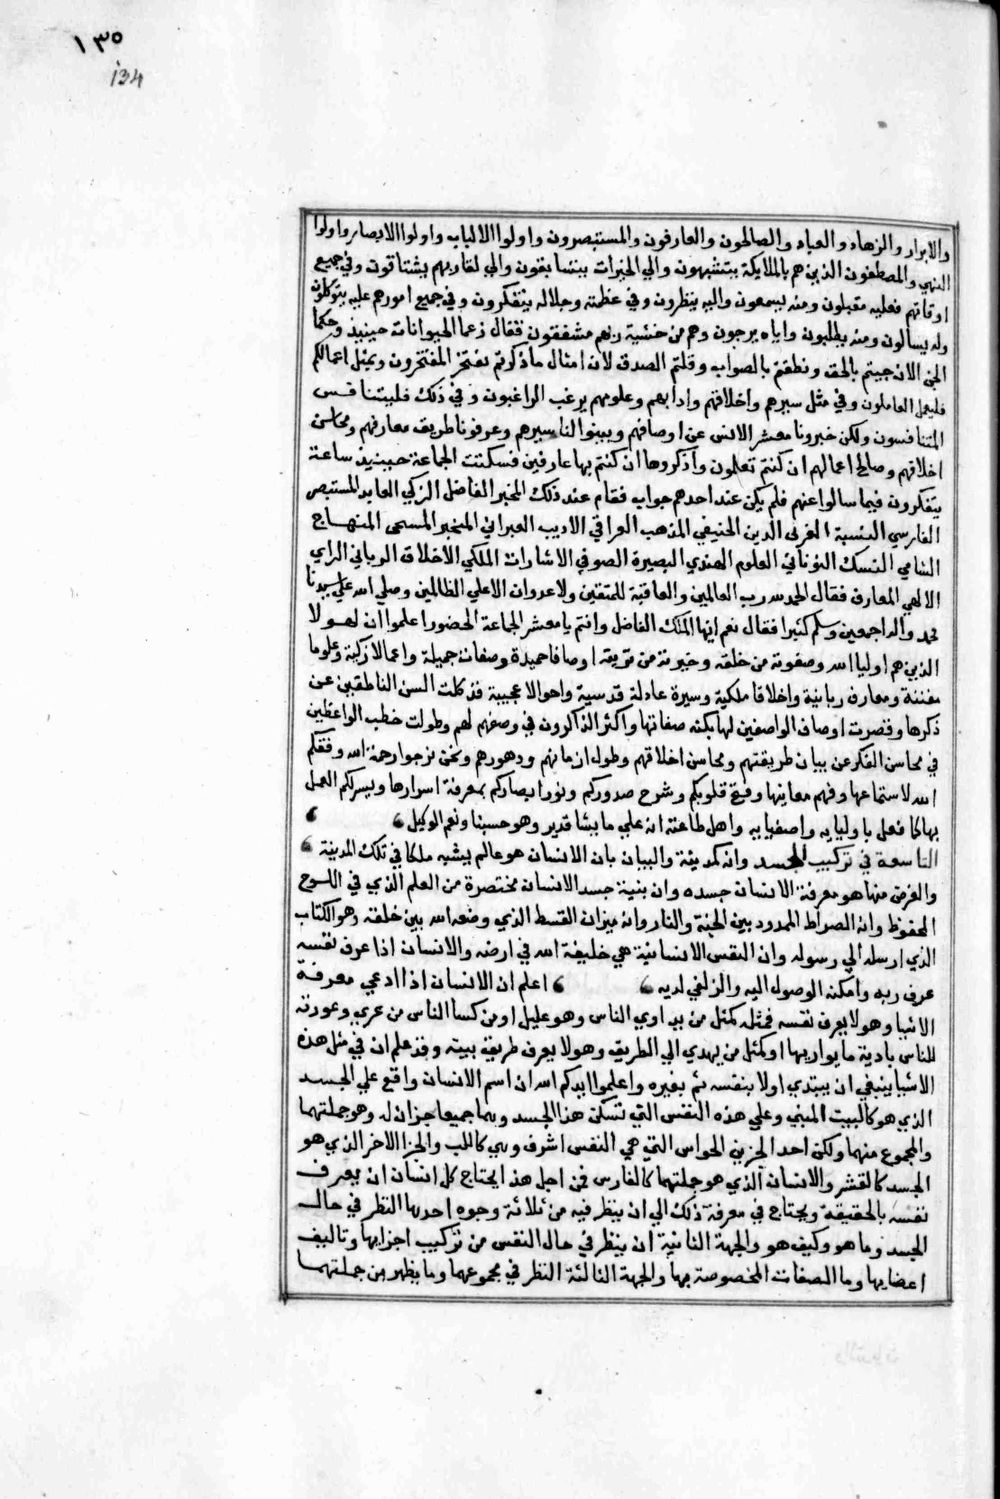 ١٣٥
134
والابرار والزهاد والعباد والصالحون والعارفون والمستبصرون واولوا الالباب واولوا الابصار واولوا
النهي والمصطفون الذين هم بالملايكة يتشبهون والي الخيرات يتسابقون والي لقا ربهم يشتاقون وفي جميع
اوقاتهم فعليه مقبلون ومنه يسمعون واليه ينظرون وفي عظمته وجلاله يتفكرون وفي جميع امورهم عليه يتوكلون
وله يسالون ومنه يطلبون واياه يرجون وهم من خشية ربهم مشفقون فقال زعما الحيوانات حينيذ وحكما
الجن الان جيتم بالحق ونطقتم بالصواب وقلتم الصدق لان امثال ما ذكرتم تفتخر المفتخرون وبمثل اعمالكم
فليعمل العاملون وفي مثل سيرهم واخلاقهم وادابهم وعلومهم يرغب الراغبون وفي ذلك فليتنافس
المتنافسون ولكن خبرونا معشر الانس عن اوصافهم وبينوا لنا سيرهم وعرفونا طريق معارفهم ومحاسن
اخلاقهم وصالح اعمالهم ان كنتم تعلمون واذكروها ان كنتم بها عارفين فسكتت الجماعة حينيذ ساعة
يتفكرون فيما سالوا عنهم فلم يكن عند احدهم جواب فقام عند ذلك الخبر الفاضل الزكي العابد المستبصر
الفارسي النسبة العربي الدين الحنيفي المذهب العراقي الاديب العبراني المخبر المسحي المنهاج
الشامي النسك اليوناني العلوم الهندي البصيرة الصوفي الاشارات الملكي الاخلاق الرباني الراي
الالهي المعارف فقال الحمد لله رب العالمين والعاقبة للمتقين ولا عدوان الا علي الظالمين وصلي الله علي سيدنا
محمد واله اجمعين وسلم كثيرا فقال نعم ايها الملك الفاضل وانتم يا معشر الجماعة الحضور اعلموا ان لهولا
الذين هم اوليا الله وصفوته من خلقه وخيرته من بريته اوصافا حميدة وصفات جميلة واعمالا زكية وعلوما
مفننة ومعارف ربانية واخلاقا ملكية وسيرة عادلة قدسية واحوالا عجيبة قد كلت السن الناطقين عن
ذكرها وقصرت اوصاف الواصفين لها بكنه صفاتها واكثر الذاكرون في وصفهم لهم وطولت خطب الواعظين
في محاسن الفكر عن بيان طريقتهم ومحاسن اخلاقهم وطول ازمانهم ودهورهم ونحن نرجوا رحمة الله وفقكم
الله لاستماعها وفهم معانيها وفتح قلوبكم وشرح صدوركم ونور ابصاركم بمعرفة اسرارها ويسر لكم العمل
بها كما فعل باوليايه واصفيايه واهل طاعته انه علي ما يشا قدير وهو حسبنا ونعم الوكيل
التاسعة في تركيب الجسد وانه كمدينة والبيان بان الانسان هو عالم يشبه ملكا في تلك المدينة
والغرض منها هو معرفة الانسان جسده وان بنية جسد الانسان مختصرة من العلم الذي في اللوح
المحفوظ وانه الصراط الممدود بين الجنة والنار وانه ميزان القسط الذي وضعه الله بين خلقه وهو الكتاب
الذي ارسله الي رسوله وان النفس الانسانية هي خليفة الله في ارضه والانسان اذا عرف نفسه
عرف ربه وامكنه الوصول اليه والزلفي لديه اعلم ان الانسان اذا ادعي معرفة
الاشيا وهو لا يعرف نفسه فمثله كمثل من يداوي الناس وهو عليل او من كسا الناس من عري وعورته
للناس بادية ما يواريها او كمثل من يهدي الي الطريق وهو لا يعرف طريق بيته وقد علم ان في مثل هذه
الاشيا ينبغي ان يبتدي اولا بنفسه ثم بغيره واعلموا ايدكم الله ان اسم الانسان واقع علي الجسد
الذي هو كالبيت المبني وعلي هذه النفس التي تسكن هذا الجسد وهما جميعا جزان له وهو جملتهما
والمجموع منهما ولكن احد الجزين الحواس التي هي النفس اشرف وهي كاللب والجزا الاخر الذي هو
الجسد كالقشر والانسان الذي هو جملتهما كالفارس فمن اجل هذا يحتاج كل انسان ان يعرف
نفسه بالحقيقة ويحتاج في معرفة ذلك الي ان ينظر فيه من ثلاثة وجوه احدها النظر في حال
الجسد وما هو وكيف هو والجهة الثانية ان ينظر في حال النفس من تركيب اجزايها وتاليف
اعضايها وما الصفات المخصوصة بها والجهة الثالثة النظر في مجموعهما وما يظهر من جملتهما